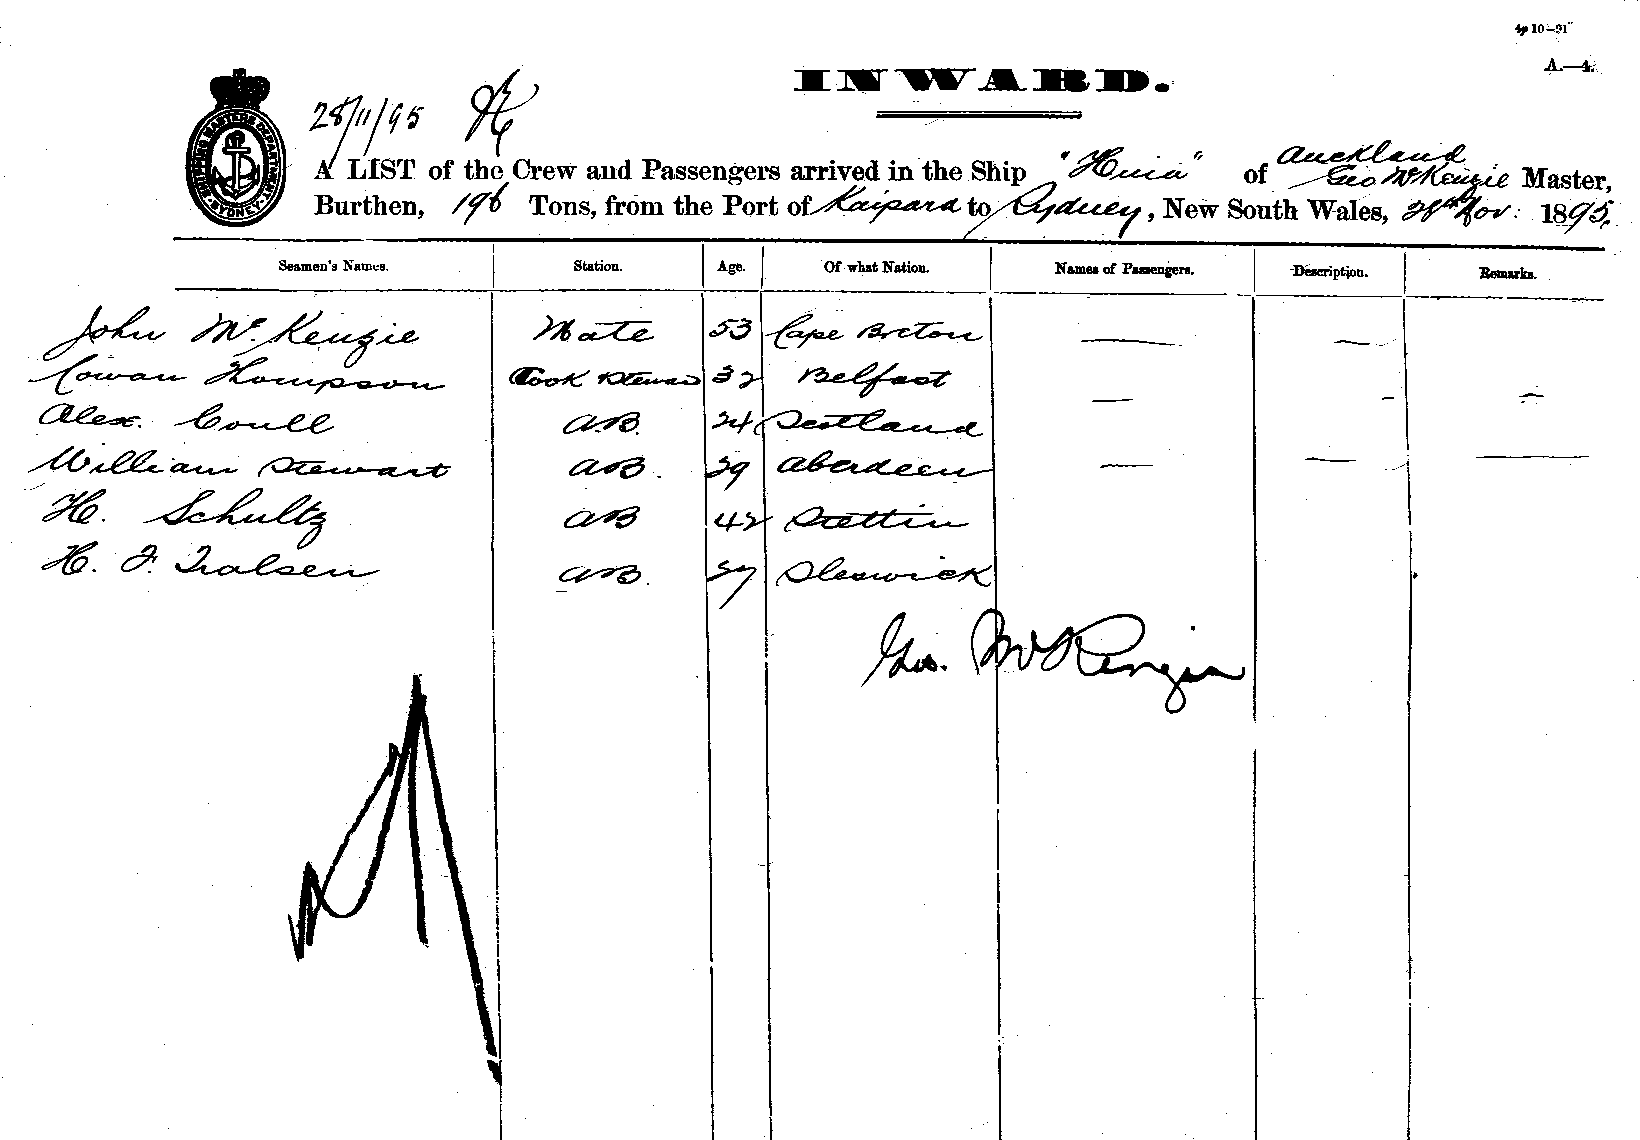 4p 10—91
A.—4.
INWARD.
28/11/95
SHIPPING MASTERS DEPARTMENT SYDNEY
A LIST of the Crew and Passengers arrived in the Ship "Huia" of Auckland Geo McKenzie Master,
Burthen, 196 Tons, from the Port of Kaipara to Sydney, New South Wales, 28th Nov: 1895.
Seamen's Names. Station. Age. Of what Nation. Names of Passengers. Description. Remarks.
John McKenzie Mate 53 Cape Breton
Cowan Thompson Cook Steward 32 Belfast
Alex. Coull AB. 24 Scotland
William Stewart AB. 29 Aberdeen
H. Schultz AB 42 Stettin
H. F. Tralsen AB. Sleswick
Geo. McKenzie